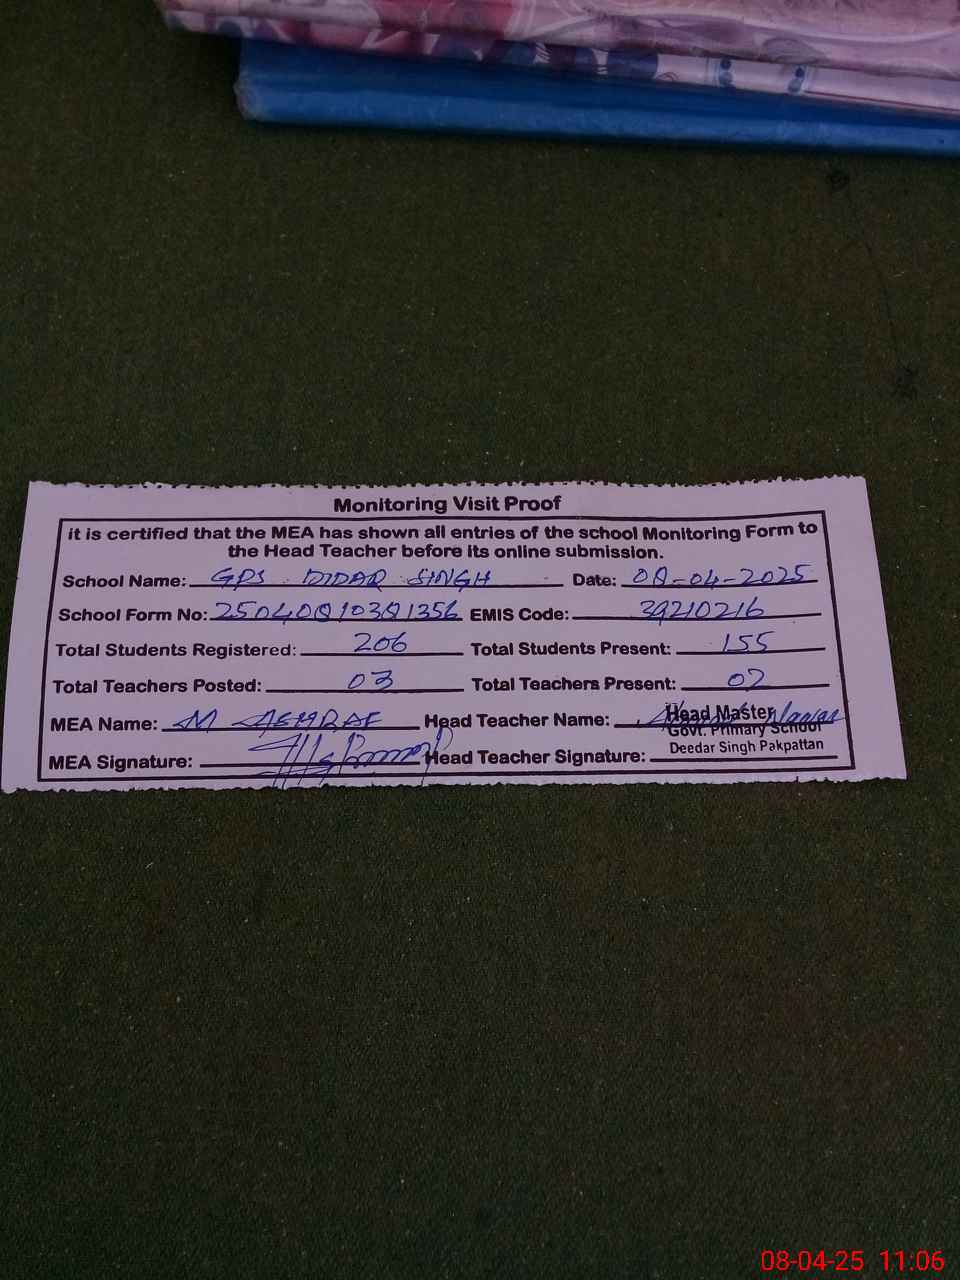 Monitoring Visit Proof
it is certified that the MEA has shown all entries of the school Monitoring Form to
the Head Teacher before its online submission.
School Name: GPS DIDAR SINGH Date: 08-04-2025
School Form No: 25040810381356 EMIS Code: 39210216
Total Students Registered: 206 Total Students Present: 155
Total Teachers Posted: 03 Total Teachers Present: 02
MEA Name: M ASHRAF Head Teacher Name:
Head Master
Govt. Primary School
Deedar Singh Pakpattan
MEA Signature: Head Teacher Signature:
08-04-25 11:06